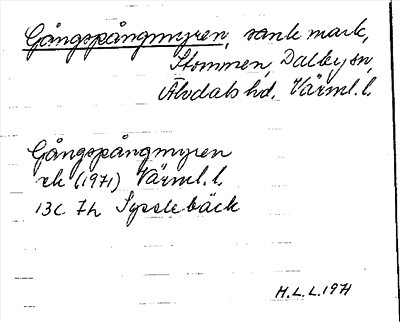 Gångspångmyren, sank mark,
Stommen, Dalby sn,
Älvdals hd, Värml. l.
Gångspångmyren
ek (1971) Värml. l.
13C 7h Sysslebäck
H.L.L. 1971